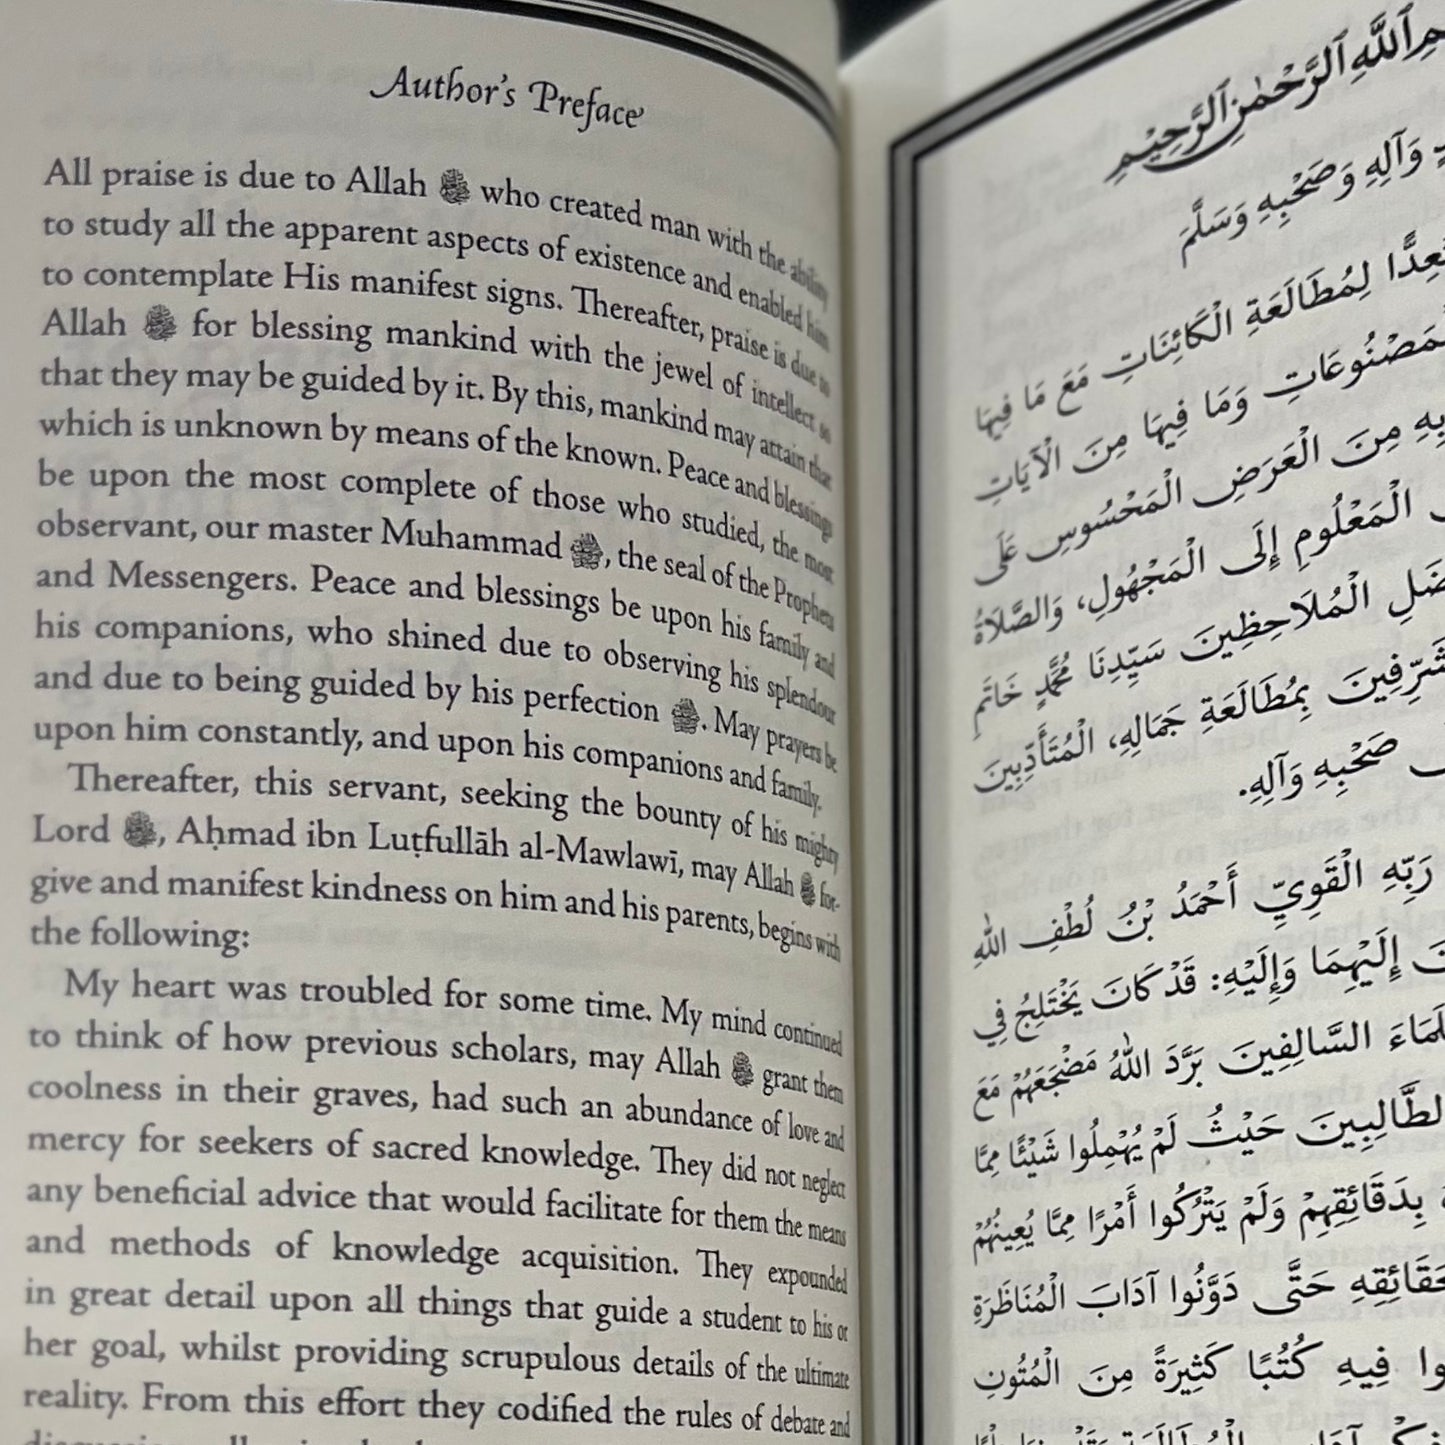 Author's Preface
All praise is due to Allah ﷻ who created man with the ability
to study all the apparent aspects of existence and enabled him
to contemplate His manifest signs. Thereafter, praise is due to
Allah ﷻ for blessing mankind with the jewel of intellect so
that they may be guided by it. By this, mankind may attain that
which is unknown by means of the known. Peace and blessings
be upon the most complete of those who studied, the most
observant, our master Muhammad ﷺ, the seal of the Prophets
and Messengers. Peace and blessings be upon his family and
his companions, who shined due to observing his splendour
and due to being guided by his perfection ﷺ. May prayers be
upon him constantly, and upon his companions and family.
Thereafter, this servant, seeking the bounty of his mighty
Lord ﷻ, Aḥmad ibn Luṭfullāh al-Mawlawī, may Allah ﷻ for-
give and manifest kindness on him and his parents, begins with
the following:
My heart was troubled for some time. My mind continued
to think of how previous scholars, may Allah ﷻ grant them
coolness in their graves, had such an abundance of love and
mercy for seekers of sacred knowledge. They did not neglect
any beneficial advice that would facilitate for them the means
and methods of knowledge acquisition. They expounded
in great detail upon all things that guide a student to his or
her goal, whilst providing scrupulous details of the ultimate
reality. From this effort they codified the rules of debate and
ٱللَّهِ ٱلرَّحْمَٰنِ ٱلرَّحِيْمِ
وَآلِهِ وَصَحْبِهِ وَسَلَّمَ
لِمُطَالَعَةِ الْكَائِنَاتِ مَعَ مَا فِيهَا
وَمَا فِيهَا مِنَ الْآيَاتِ
مِنَ الْعَرَضِ الْمَحْسُوسِ عَلَى
الْمَعْلُومِ إِلَى الْمَجْهُولِ، وَالصَّلَاةُ
الْمُلَاحِظِينَ سَيِّدِنَا مُحَمَّدٍ خَاتَمِ
بِمُطَالَعَةِ جَمَالِهِ، الْمُتَأَدِّبِينَ
صَحْبِهِ وَآلِهِ.
رَبِّهِ الْقَوِيِّ أَحْمَدُ بْنُ لُطْفِ اللهِ
إِلَيْهِمَا وَإِلَيْهِ: قَدْ كَانَ يَخْتَلِجُ فِي
السَّالِفِينَ بَرَّدَ اللهُ مَضْجَعَهُمْ مَعَ
حَيْثُ لَمْ يُهْمِلُوا شَيْئًا مِمَّا
بِدَقَائِقِهِمْ وَلَمْ يَتْرُكُوا أَمْرًا مِمَّا يُعِينُهُمْ
حَتَّى دَوَّنُوا آدَابَ الْمُنَاظَرَةِ
فِيهِ كُتُبًا كَثِيرَةً مِنَ الْمُتُونِ